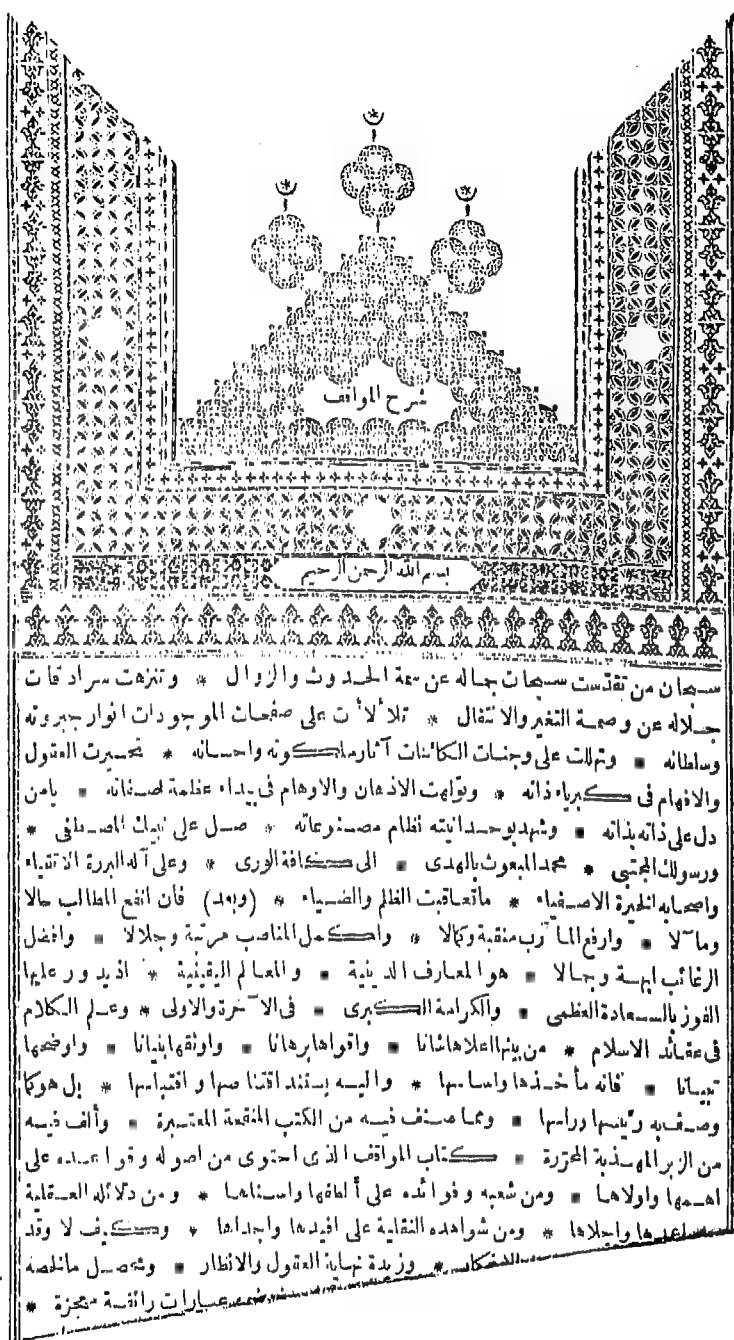 شرح المواقف
بسم الله الرحمن الرحيم
سبحان من تقدّست سبحات جماله عن سمة الحدوث والزوال * وتنزهت سرادقات
جلاله عن وصمة التغير والانتقال * تلألأت على صفحات الموجودات انوار جبروته
وسلطانه * وتهللت على وجنات الكائنات آثار ملكوته واحسانه * تحيرت العقول
والافهام فى كبرياء ذاته * وتولهت الاذهان والاوهام فى بيداء عظمة صفاته * يامن
دل على ذاته بذاته * وشهد بوحدانيته نظام مصنوعاته * صل على نبيك المصطفى *
ورسولك المجتبى * محمد المبعوث بالهدى * الى كافة الورى * وعلى آله البررة الاتقياء
واصحابه الخيرة الاصفياء * ماتعاقبت الظلم والضياء * (وبعد) فان انفع المطالب حالا
ومآلا * وارفع المآرب منقبة وكمالا * واكمل المناصب مرتبة وجلالا * وافضل
الرغائب ابهة وجمالا * هو المعارف الدينية * والمعالم اليقينية * اذ يدور عليها
الفوز بالسعادة العظمى * والكرامة الكبرى * فى الآخرة والاولى * وعلم الكلام
فى عقائد الاسلام * من بينها اعلاها شانا * واقواها برهانا * واوثقها بنيانا * واوضحها
تبيانا * فانه مأخذها واساسها * واليه يستند اقتناصها واقتباسها * بل هو كما
وصف به رئيسها وراسها * ومما صنف فيه من الكتب المنقحة المعتبرة * وألف فيه
من الزبر المهذبة المحررة * كتاب المواقف الذى احتوى من اصوله وقواعده على
اهمها واولاها * ومن شعبه وفوائده على ألطفها واسناها * ومن دلائله العقلية
اعمدها واجلاها * ومن شواهده النقلية على افيدها واجداها * وكيف لا وقد
* وزبدة نهاية العقول والانظار * ومحصل مالخصه
عبارات رائقة معجزة *